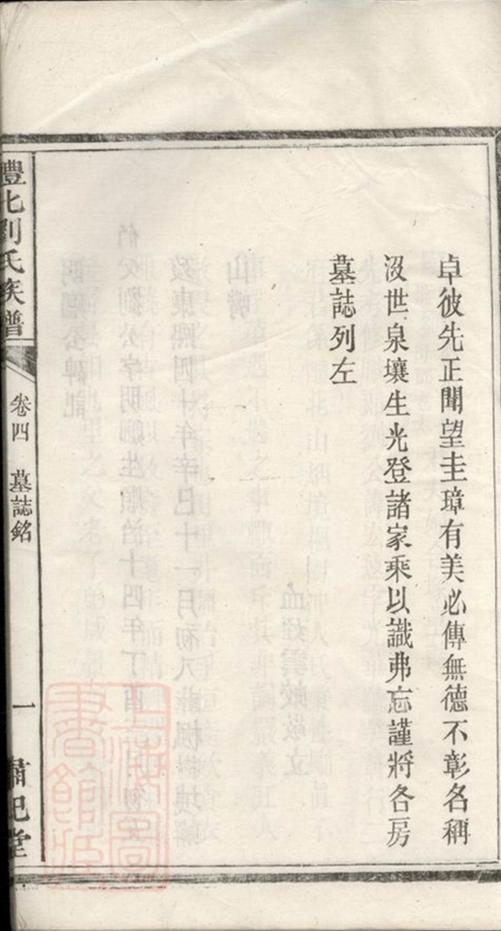 卓彼先正聞望圭璋有美必傳無德不彰名稱
沒世泉壤生光登諸家乘以識弗忘謹將各房
墓誌列左
豐北劉氏族譜
卷四 墓誌銘
一
肅祀堂